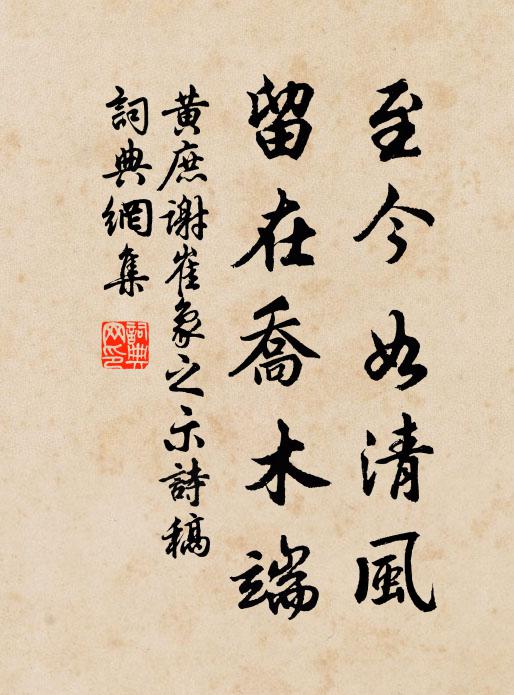 至今如清風
留在喬木端
黃庶謝崔象之示詩稿
詞典網集
詞典網印